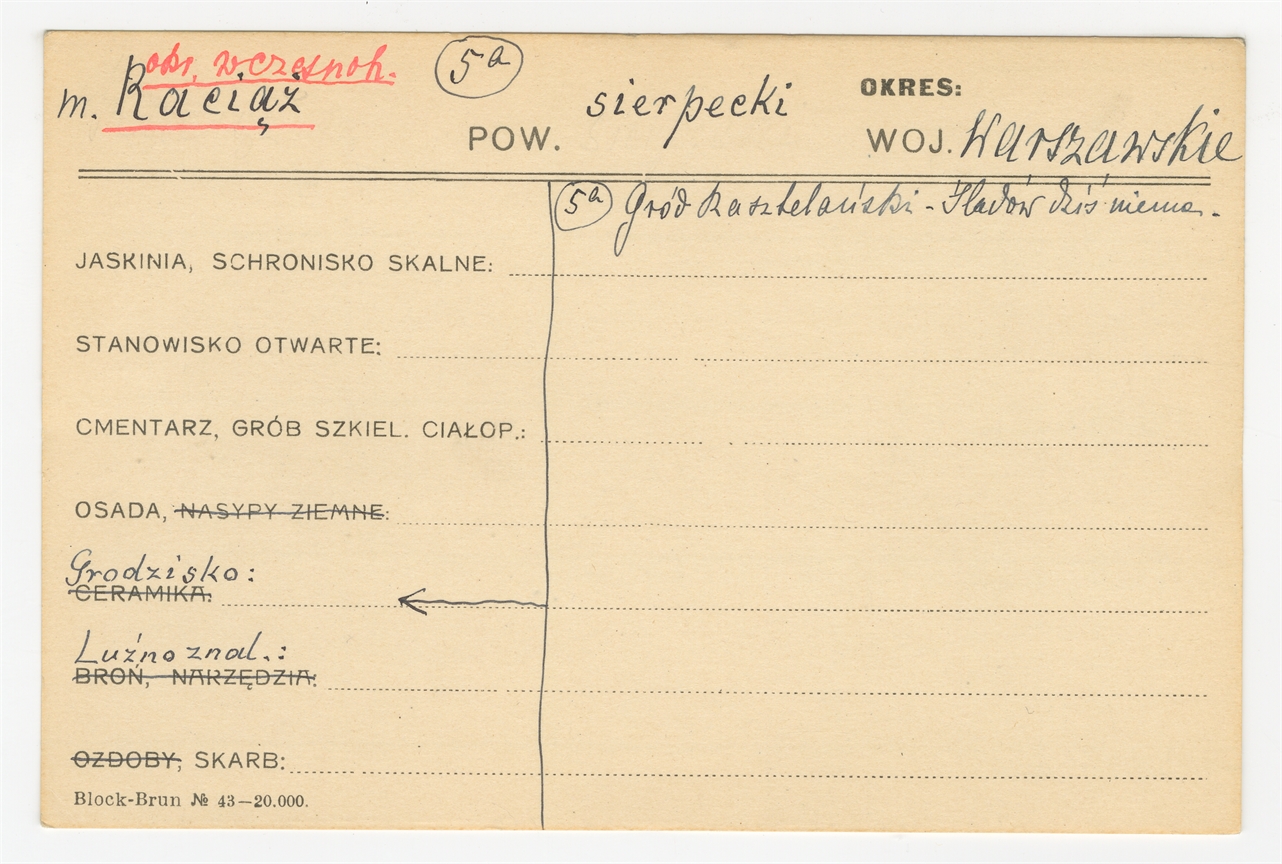 okr. wczesnoh.
m. Raciąż
5a
POW. sierpecki
OKRES:
WOJ. Warszawskie
5a Gród kasztelański - Śladów dziś niema.
JASKINIA, SCHRONISKO SKALNE:
STANOWISKO OTWARTE:
CMENTARZ, GRÓB SZKIEL. CIAŁOP.:
OSADA, NASYPY ZIEMNE:
Grodzisko:
CERAMIKA:
Luźno znal.:
BROŃ, NARZĘDZIA:
OZDOBY, SKARB:
Block-Brun № 43—20.000.